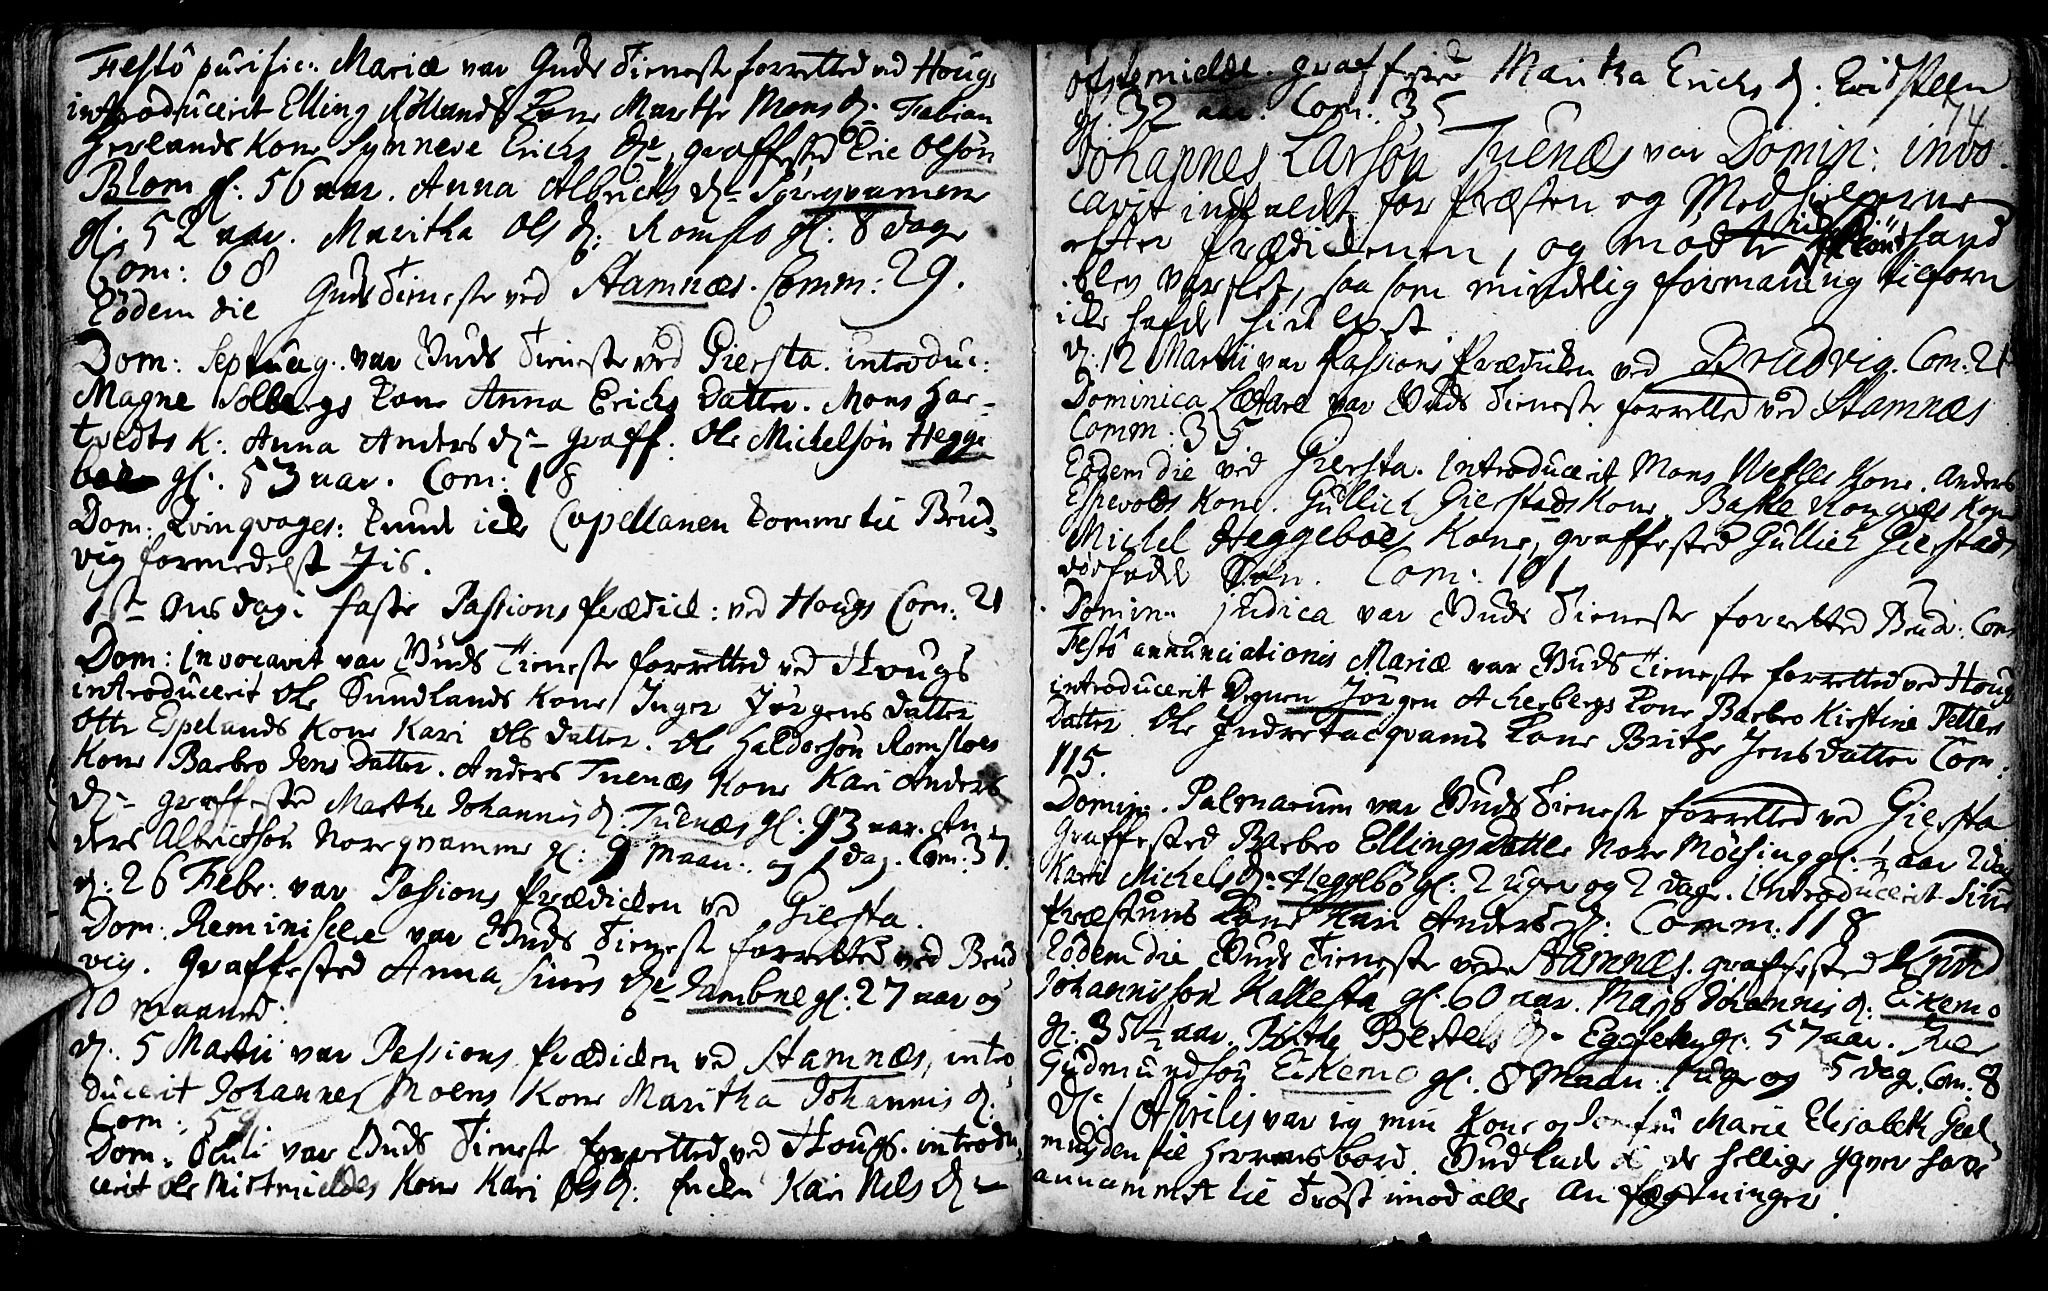 Festo purific: Mariæ var Guds Tieneste forretted ved Hougs
introducerit Elling Røllands Kone Marthe Mons d: Fabian
Herlands Kone Synneve Erichs d: graffested Eric Olson
Blom gl: 56 aar. Anna Albricts d: Sørqvamene
gl: 52 aar. Maritha Ols d: Romslo gl: 8 dage
Com: 68
Eodem die Guds Tieneste ved Stamnæs. Comm: 29.
Dom: Septuag. var Guds Tieneste ved Giersta. introduc:
Magne Solbergs Kone Anna Erichs Datter. Mons Har-
tvedts K: Anna Anders d: graff. Ole Michelsøn Hegge
boe gl: 53 aar. Com: 18
Dom: Qvinqvages: kunde icke Capellanen komme til Brud-
vig formedelst Jis.
1ste Onsdag i faste Passions Prædick: ved Hougs Com: 21
Dom: Invocavit var Guds Tieneste forretted ved Hougs
introducerit Ole Sundlands Kone Inger Jørgens datter
Otte Espelands Kone Kari Ols datter. Ole Haldorsøn Romsloes
Kone Barbro Jens Datter. Anders Tuenæs Kone Kari Anders
d: graffested Marthe Johannis d: Tuenæs gl: 93 aar. An-
ders Albrictsøn Noreqvamme gl: 9 maan: og 1 dag. Com: 37.
d: 26 Febr: var Passions Prædicken ved Giersta.
Dom: Reminiscere var Guds Tieneste forretted ved Brud
vig. Graffested Anna Siurs d: Dambne gl: 27 aar og
10 maaned:
d: 5 Martii var Passions Prædicken ved Stamnæs, intro-
ducerit Johannes Moens Kone Maritha Johannis d:
Com: 59
Dom: Oculi var Guds Tieneste forretted ved Hougs. introdu-
cerit Ole Mistmieldes Kone Kari Ols d: Kari Nils d:
graffested Maritha Erichs d: Eidsteen
gl: 32 aar. Com: 35
74
Johannes Larsøn Tuenæs var Domin: invo-
cavit indkaldet for Præsten og Medhielperne
efter Prædickenen, og mødte hand
blev varslet, saa som mindelig formaning tilforn
icke hafde
d: 12 Martii var Passions Prædicken ved Brudvig. Com: 21
Dominica Lætare var Guds Tieneste forretted ved Stamnæs
Comm: 35
Eodem die ved Giersta. Introducerit Mons Vetles Kone. Anders
Espevolds Kone. Gullich Gierstads Kone. Kone
Michel Heggeboes Kone, graffested Gullich Gierstads
dødfødde Søn. Com: 101
Domin: judica var Guds Tieneste forretted Brud: Com
Festo annunciationis Mariæ var Guds Tieneste forretted ved Hougs
introducerit Degnen Jørgen Acherbergs Kone Barbro Kirstine Petters
Datter. Ole Indretacqvams Kone Brithe Jens datter Com:
115.
Domin: Palmarum var Guds Tieneste forretted ved Giersta
Graffested Barbro Ellings Datter Nore Møcsing gl: ½ aar 2 dag
Kari Michels d: Heggebø gl: 2 uger og 2 dage. Introducerit Siur
Præstuns Kone Kari Anders d: Comm. 118
Eodem die Guds Tieneste vede Stamnæs. graffested Knud
Johannisøn Kallestad gl: 60 aar. Magd Johannis d: Eikemo
gl: 35½ aar. Brithe Bertels d: gl: 57 aar.
Gudmundsøn Eikemo gl: 8 Maan: 1 uge og 5 dag. Com: 8
d: 1 Aprilis var ieg min Kone og Jomfru Marie Elisabeth Geel-
muyden til Herrens bord. Gud lade de hellige Hver have
annammet til Trøst imod alle Anfægtninger.